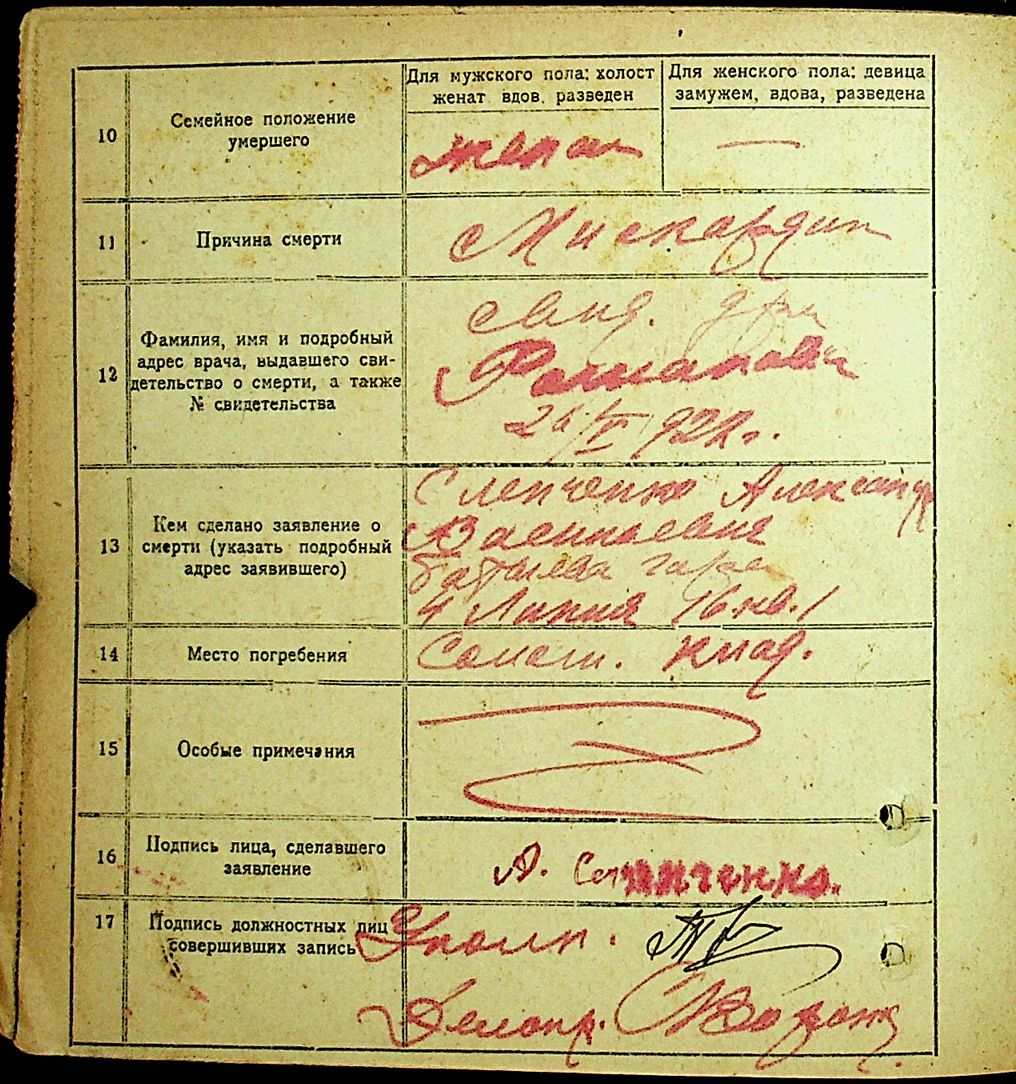 Для мужского пола: холост
женат. вдов. разведен
Для женского пола: девица
замужем, вдова, разведена
10
Семейное положение
умершего
женат
—
11
Причина смерти
Миокардит
12
Фамилия, имя и подробный
адрес врача, выдавшего сви-
детельство о смерти, а также
№ свидетельства
Романова
13
Кем сделано заявление о
смерти (указать подробный
адрес заявившего)
Слепченко Александр
Васильевна
4 Линия 16 кв. 1
14
Место погребения
клад.
15
Особые примечания
16
Подпись лица, сделавшего
заявление
А. Слепченко.
17
Подпись должностных лиц
совершивших запись
Уполн.
Делопр.